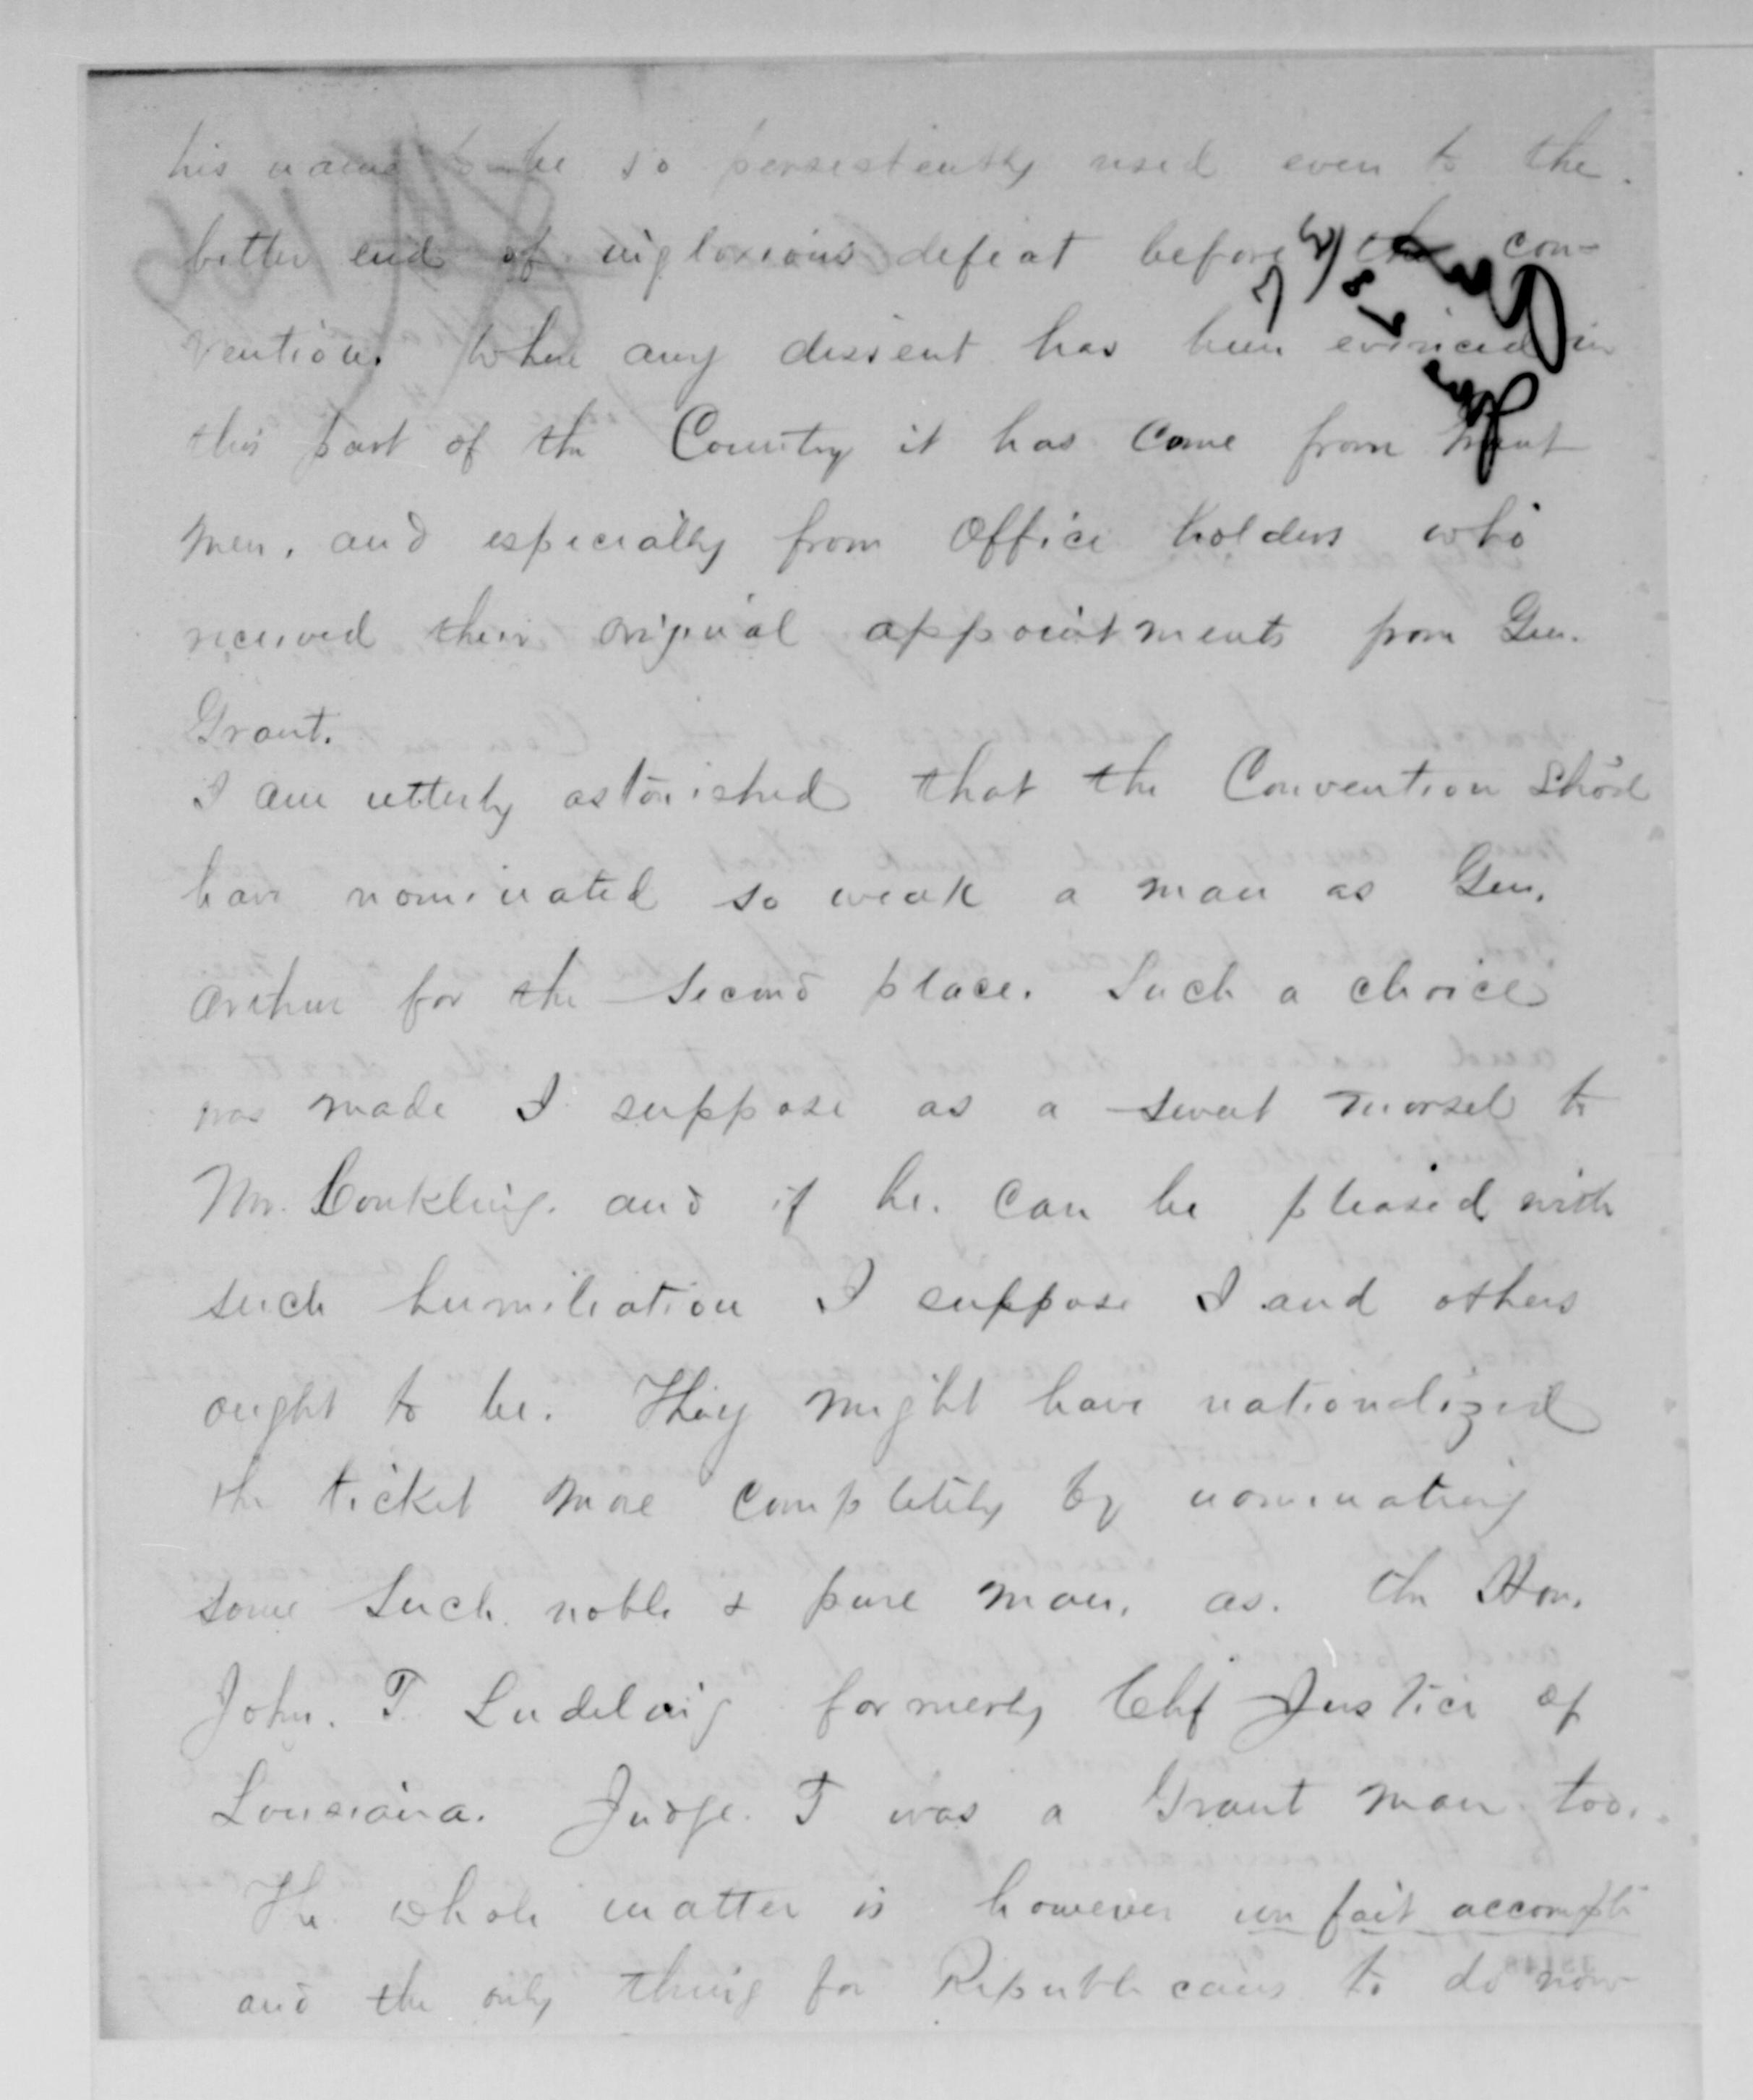 his name to be so persistently used even to the
bitter end of inglorious defeat before the con-
vention. When any dissent has been evinced in
this part of the Country it has come from Grant
men, and especially from Office holders who
received their original appointments from Gen.
Grant.
I am utterly astonished that the Convention Sho'd
have nominated so weak a man as Gen.
Arthur for the second place. Such a choice
was made I suppose as a sweet morsel to
Mr. Conkling. and if he. can be pleased with
such humiliation I suppose I and others
ought to be. They might have nationalized
the ticket more completely by nominating
some such noble & pure man, as. the Hon.
John. T. Ludeling formerly Chf Justice of
Louisiana. Judge. T was a Grant man too.
The whole matter is however un fait accompli
and the only thing for Republicans to do now